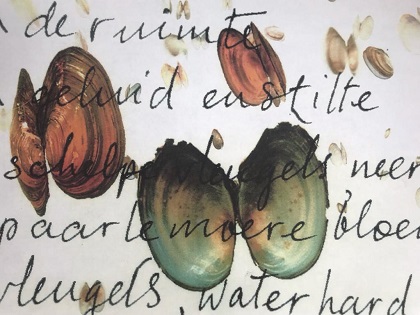 de ruimte
geluid en stilte
schelpe vleugels neer
paarlemoere bloe
vleugels, water hard